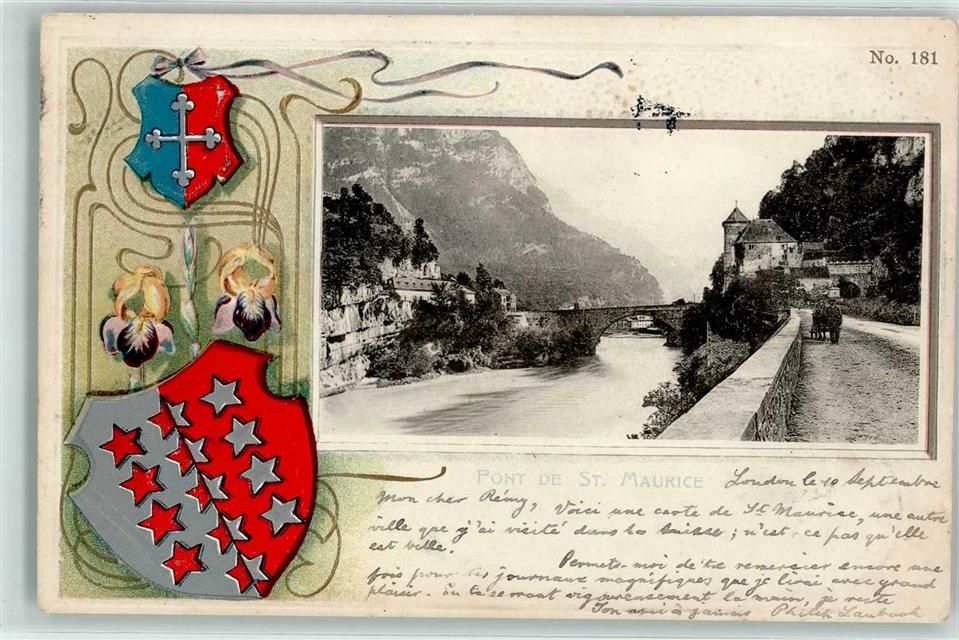 No. 181
PONT DE ST. MAURICE
London le 10 Septembre
Mon cher Rémy, Voici une carte de St Maurice, une autre
ville que j'ai visité dans la Suisse; n'est-ce pas qu'elle
est belle.
Permets-moi de te remercier encore une
fois pour les journaux magnifiques que je lirai avec grand
plaisir. En te serrant vigoureusement la main, je reste
Ton ami à jamais Philip